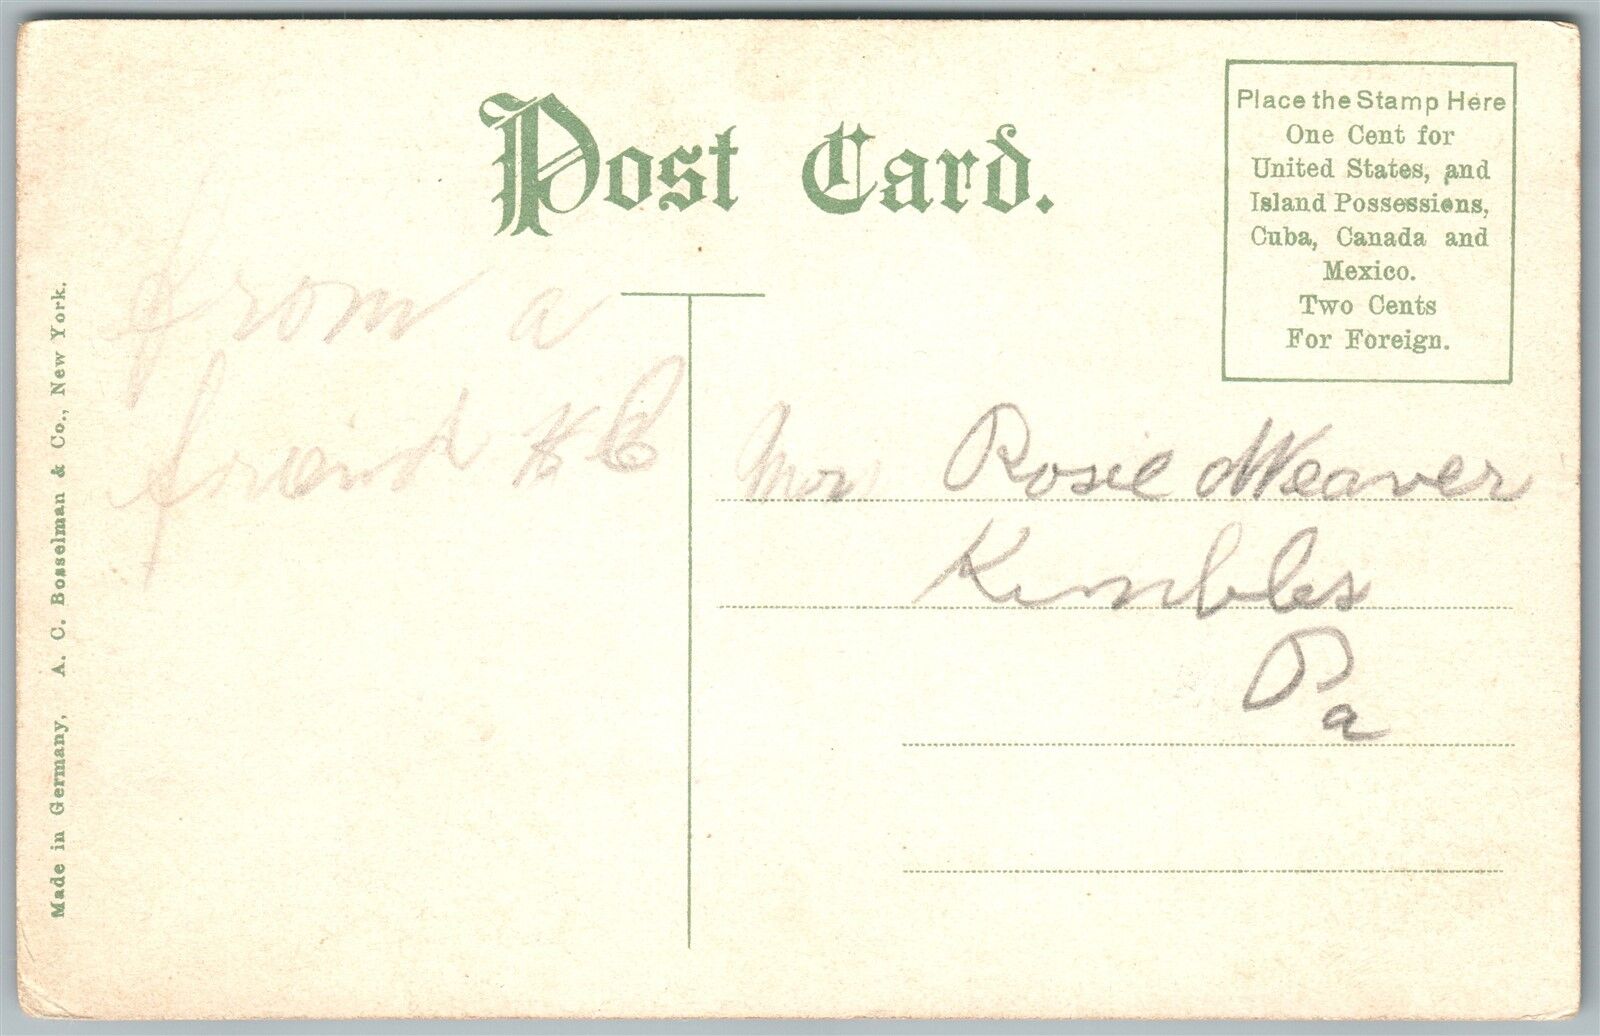 Post Card.
Place the Stamp Here
One Cent for
United States, and
Island Possessions,
Cuba, Canada and
Mexico.
Two Cents
For Foreign.
from a
friend
Rosie Weaver
Kimbles
Pa
Made in Germany, A. C. Bosselman & Co., New York.